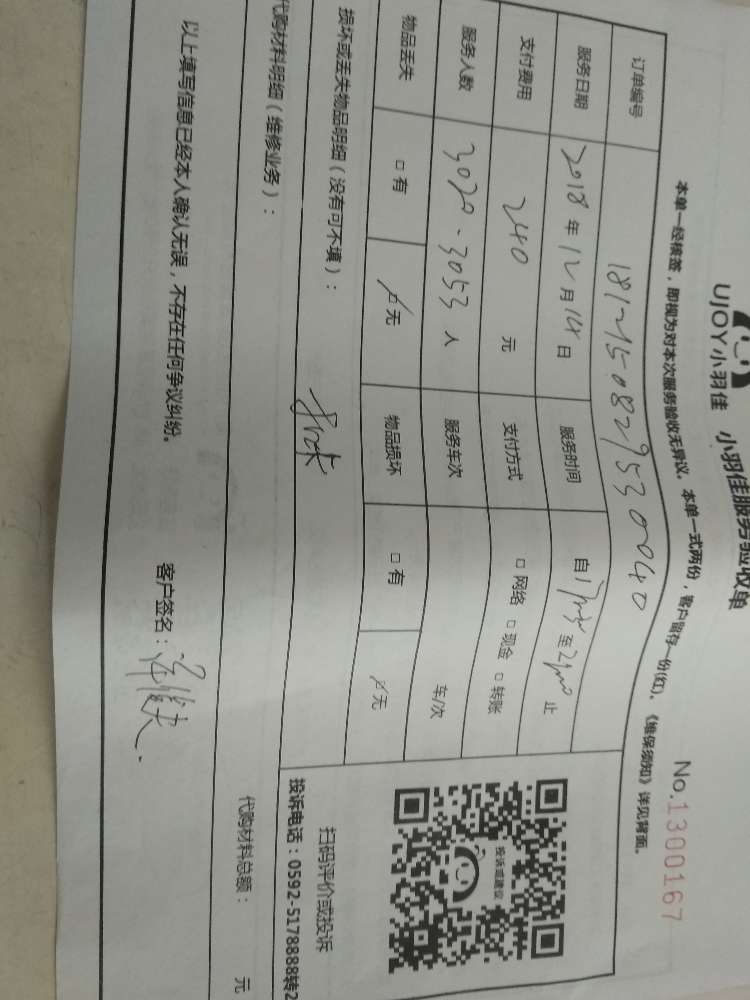 UJOY小羽佳 小羽佳服务验收单
No.1300167
本单一经核签，即视为对本次服务验收无异议。本单一式两份，客户留存一份(红)。《维保须知》详见背面。
订单编号
服务日期 2018 年 12 月 14 日 服务时间 自 至 止
支付费用 240 元 支付方式 □ 网络 □ 现金 □ 转账
服务人数 3020-3053 人 服务车次 车/次
物品丢失 □ 有 □ 无 物品损坏 □ 有 □ 无
损坏或丢失物品明细（没有可不填）：
投诉或建议
扫码评价或投诉
投诉电话：0592-5178888转2
代购材料明细（维修业务）：
代购材料总额： 元
以上填写信息已经本人确认无误，不存在任何争议纠纷。
客户签名：